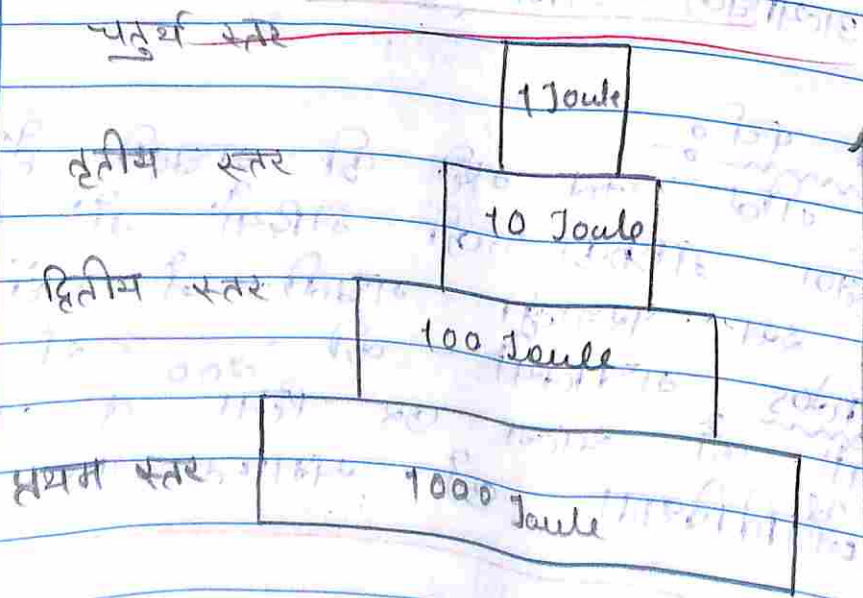 चतुर्थ स्तर
1 Joule
तृतीय स्तर
10 Joule
द्वितीय स्तर
100 Joule
प्रथम स्तर
1000 Joule